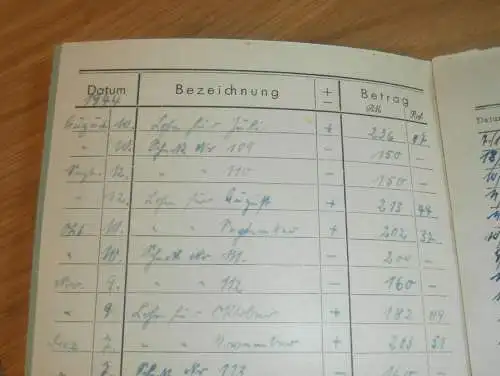 Datum Bezeichnung + − Betrag
1944 Rℳ Rpf
August 10. Lohn für Juli + 236 97
" 10. Scheck Nr 109 − 150 −
Sept. 12. " " 110 − 150 −
" 12. Lohn für August + 213 44
Okt. 10. " " September + 202 32
" 10. Scheck Nr 111. − 200 −
Nov. 9. " " 112 − 160 −
" 9. Lohn für Oktober + 182 09
Dez. 7. " " November + 203
" 7. Scheck Nr 113 − 160 −
Datum